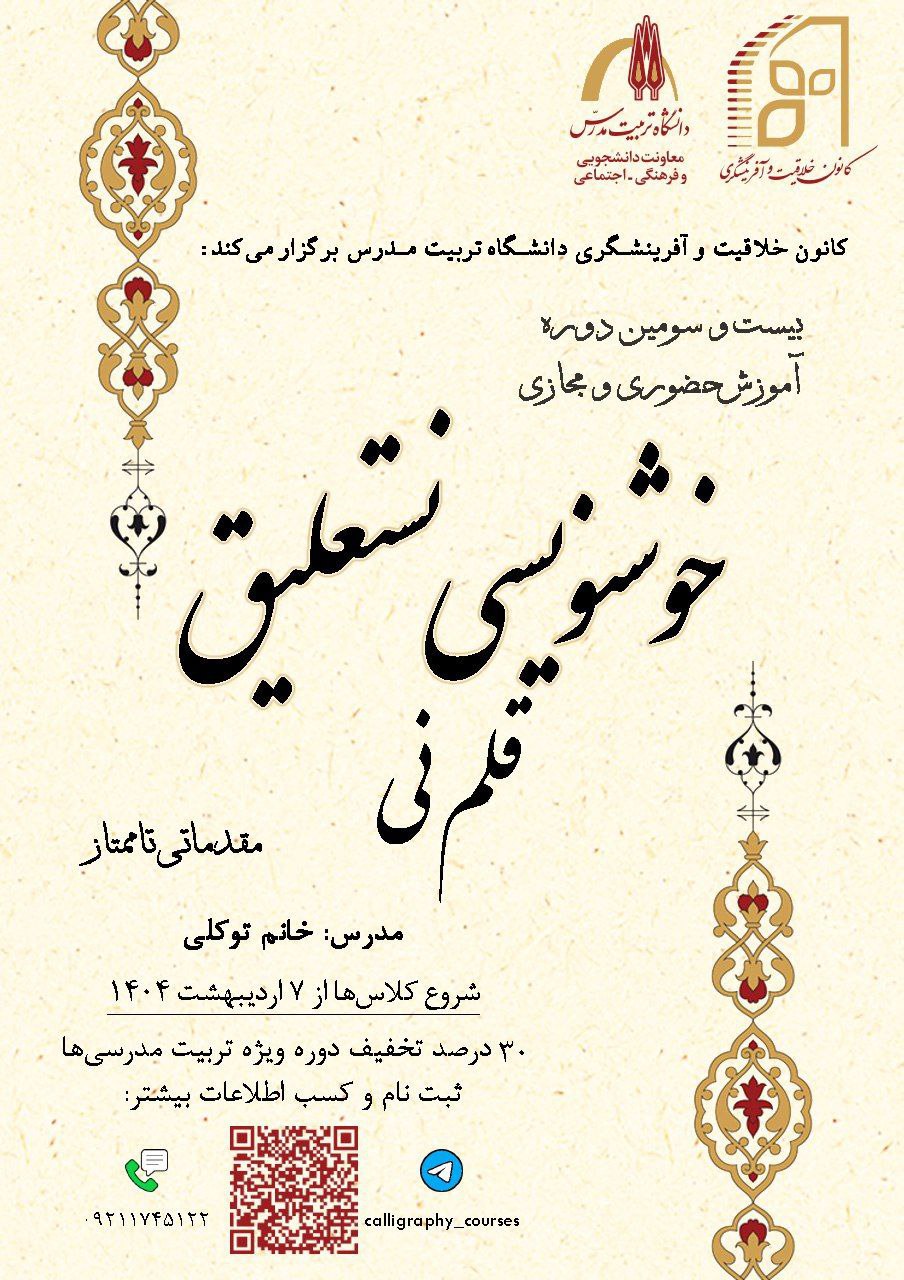 دانشگاه تربیت مدرس
معاونت دانشجویی
و فرهنگی - اجتماعی
کانون خلاقیت و آفرینشگری
کانون خلاقیت و آفرینشگری دانشگاه تربیت مدرس برگزار می‌کند:
بیست و سومین دوره
آموزش حضوری و مجازی
خوشنویسی نستعلیق
قلم نی
مقدماتی تا ممتاز
مدرس: خانم توکلی
شروع کلاس‌ها از ۷ اردیبهشت ۱۴۰۴
۳۰ درصد تخفیف دوره ویژه تربیت مدرسی‌ها
ثبت نام و کسب اطلاعات بیشتر:
calligraphy_courses
۰۹۲۱۱۷۴۵۱۲۲